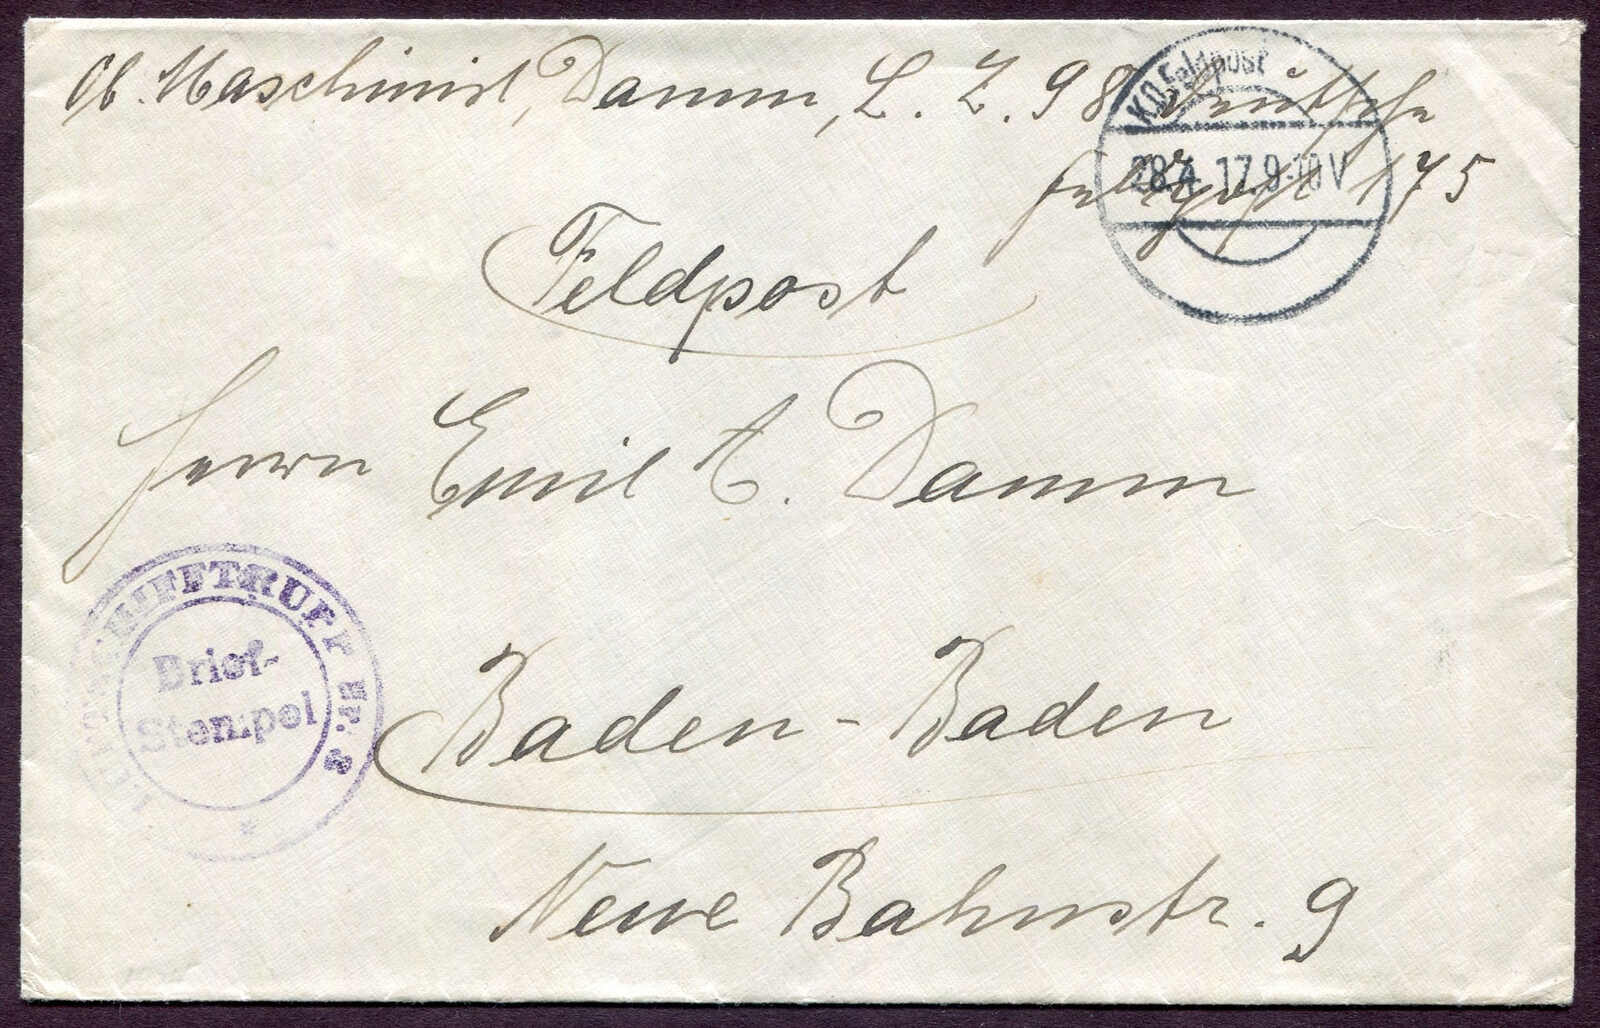 Ob. Maschinist Damm, L. Z. 98 Deutsche
Feldpost 175
K.D. Feldpost
28.4.17.9-10V
Feldpost
Herrn Emil A. Damm
SCHIFFTRUPP Nr.
Brief-
Stempel
Baden-Baden
Neue Bahnstr. 9